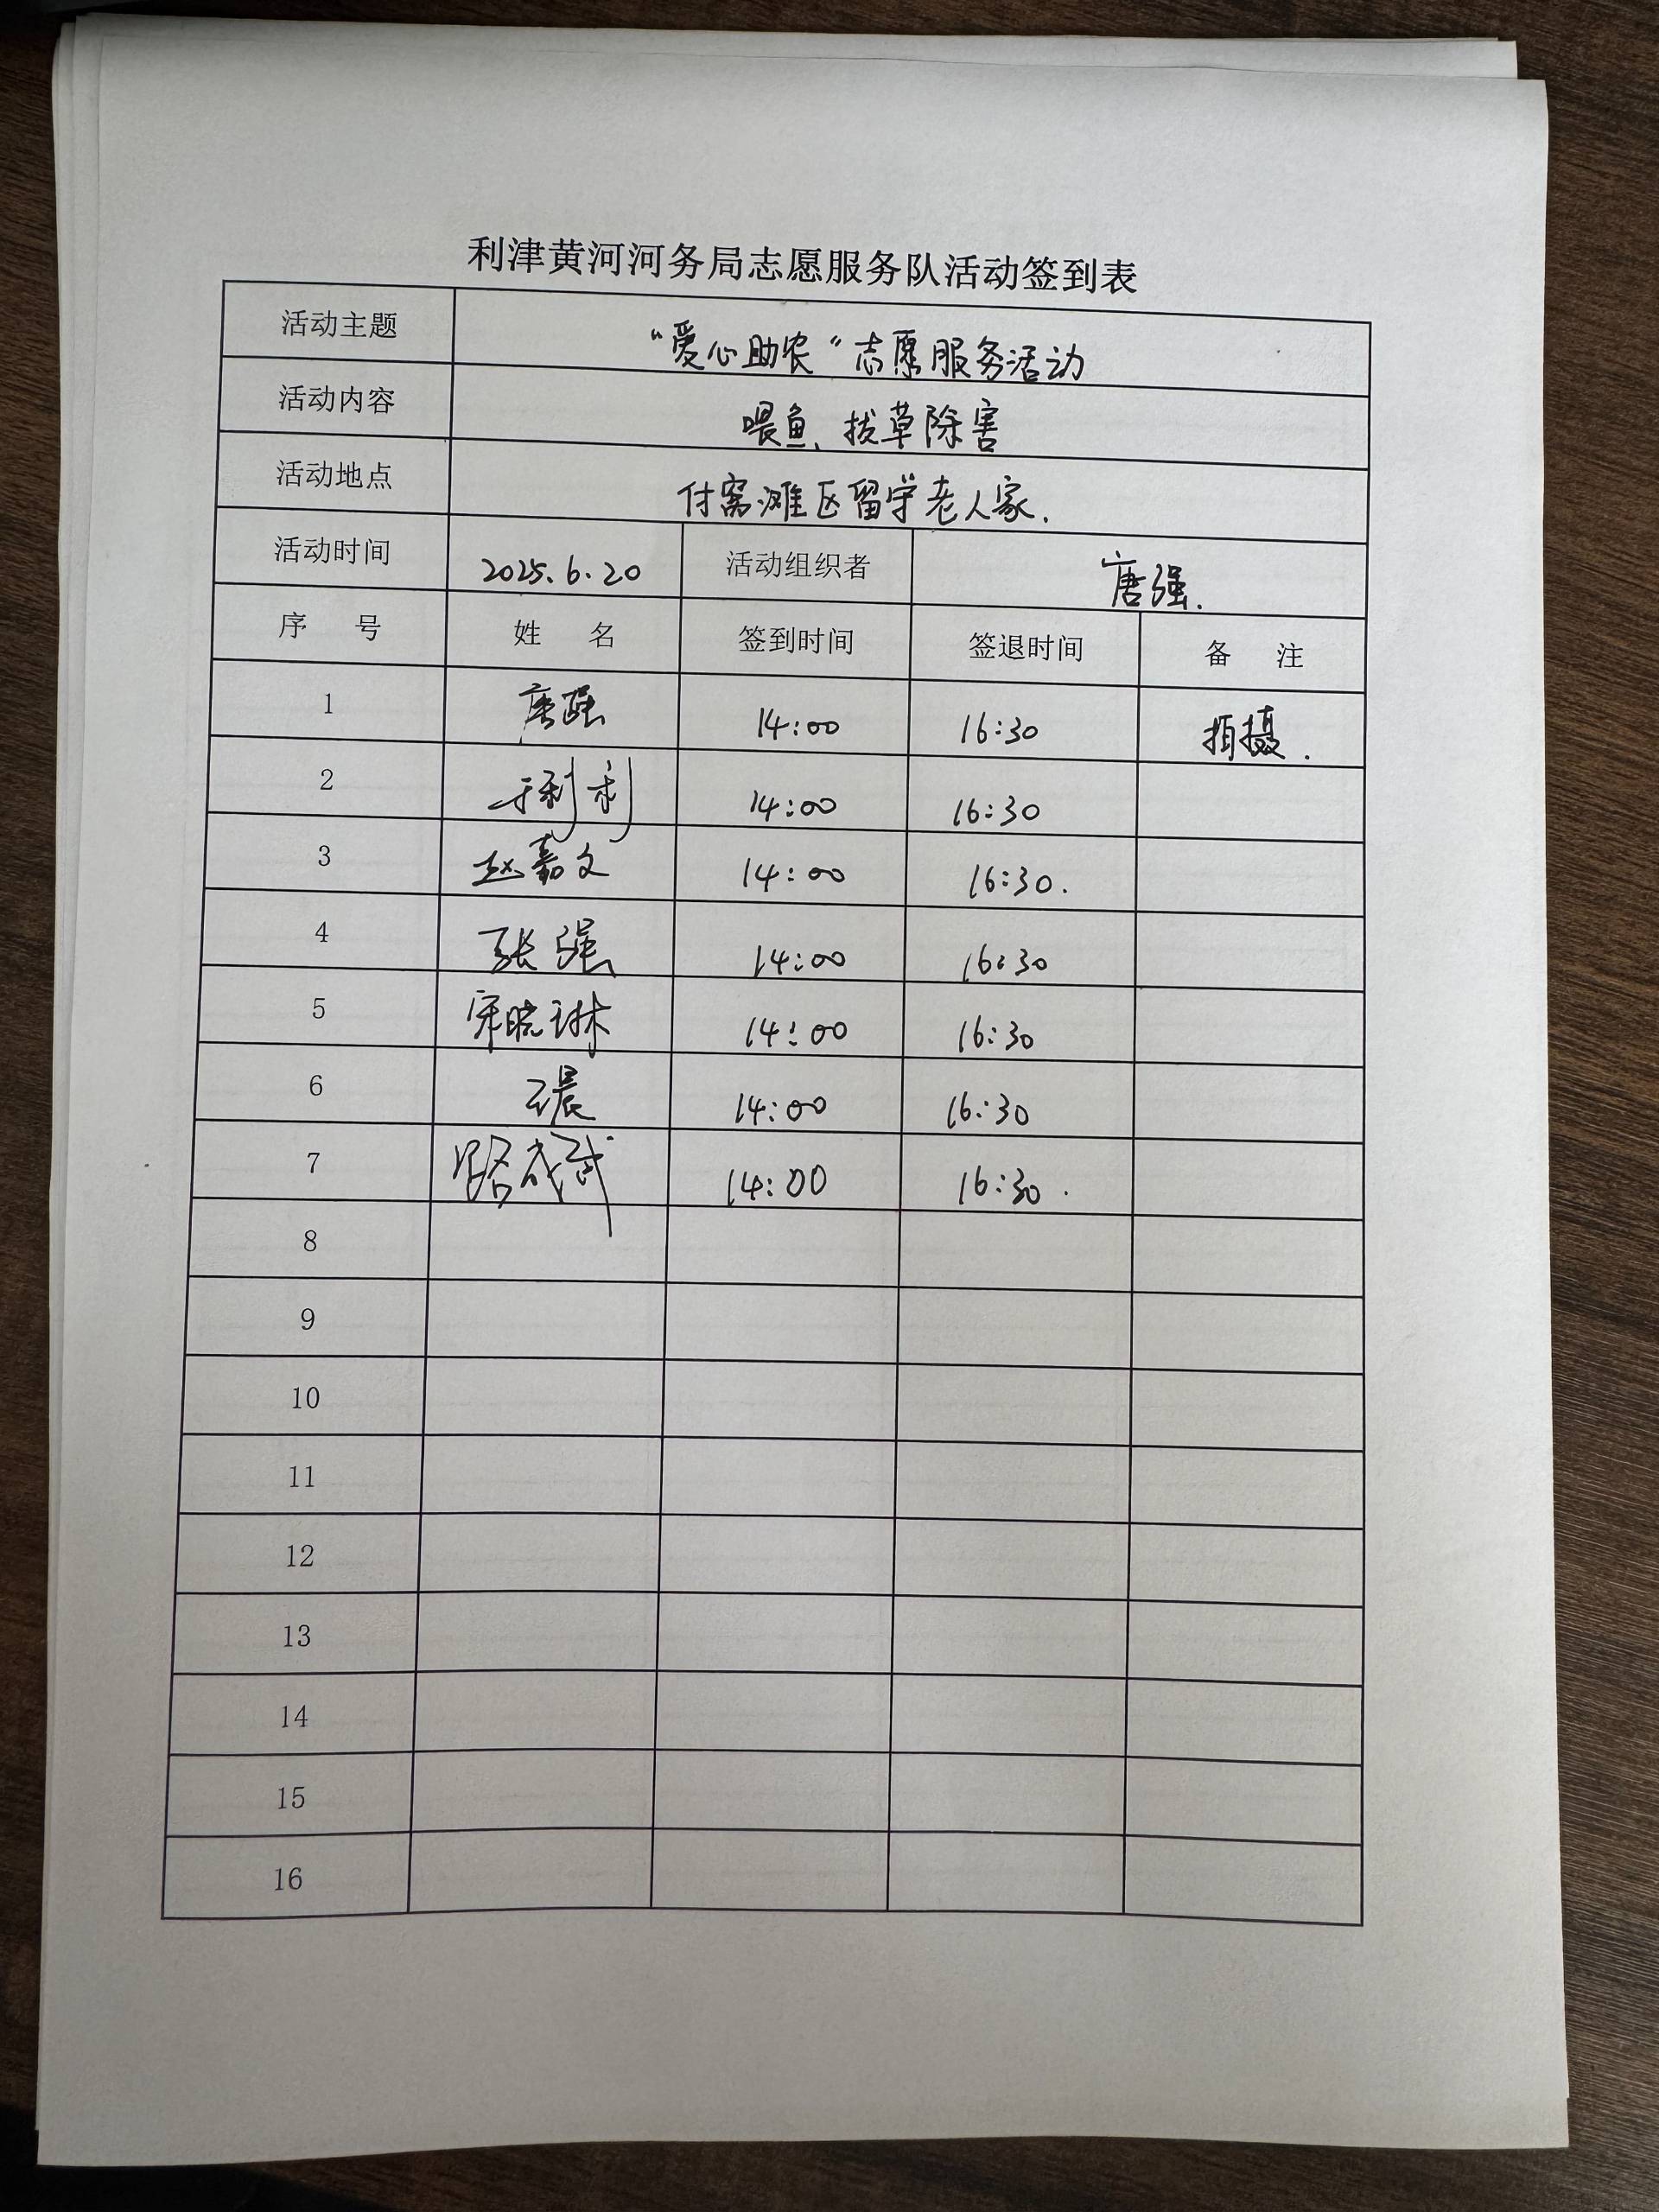 利津黄河河务局志愿服务队活动签到表
活动主题 “爱心助农”志愿服务活动
活动内容 喂鱼、拔草除害
活动地点 付窝滩区留守老人家.
活动时间 2025.6.20 活动组织者 唐强.
序 号 姓 名 签到时间 签退时间 备 注
1 唐强 14:00 16:30 拍摄.
2 于利利 14:00 16:30
3 赵嘉文 14:00 16:30.
4 张强 14:00 16:30
5 宋晓琳 14:00 16:30
6 王晨 14:00 16:30
7 路成武 14:00 16:30.
8
9
10
11
12
13
14
15
16